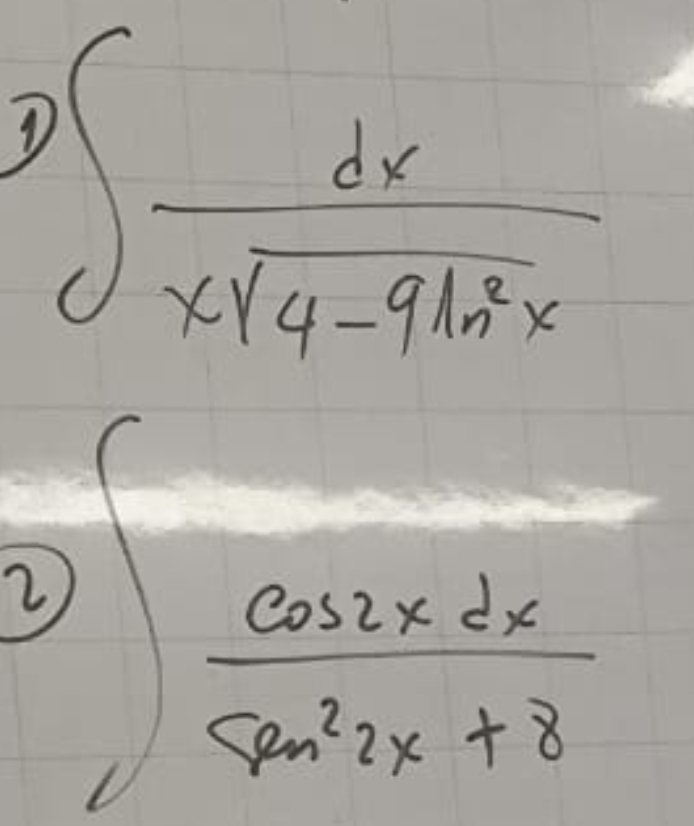 ① ∫ dx / x√4-9ln²x
② ∫ cos2x dx / Sen²2x + 8